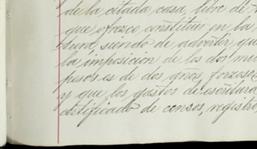 de la citada casa, libre de
que ofrezco constituir en la
siendo de advertir que
la imposicion de los dos mil
pesos es de dos años, forzosos
y que los gastos de escritura
de censos, registro